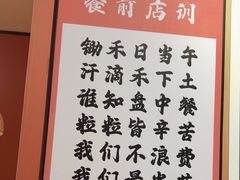 餐前店训
锄禾日当午
汗滴禾下土
谁知盘中餐
粒粒皆辛苦
我们不浪费
我们